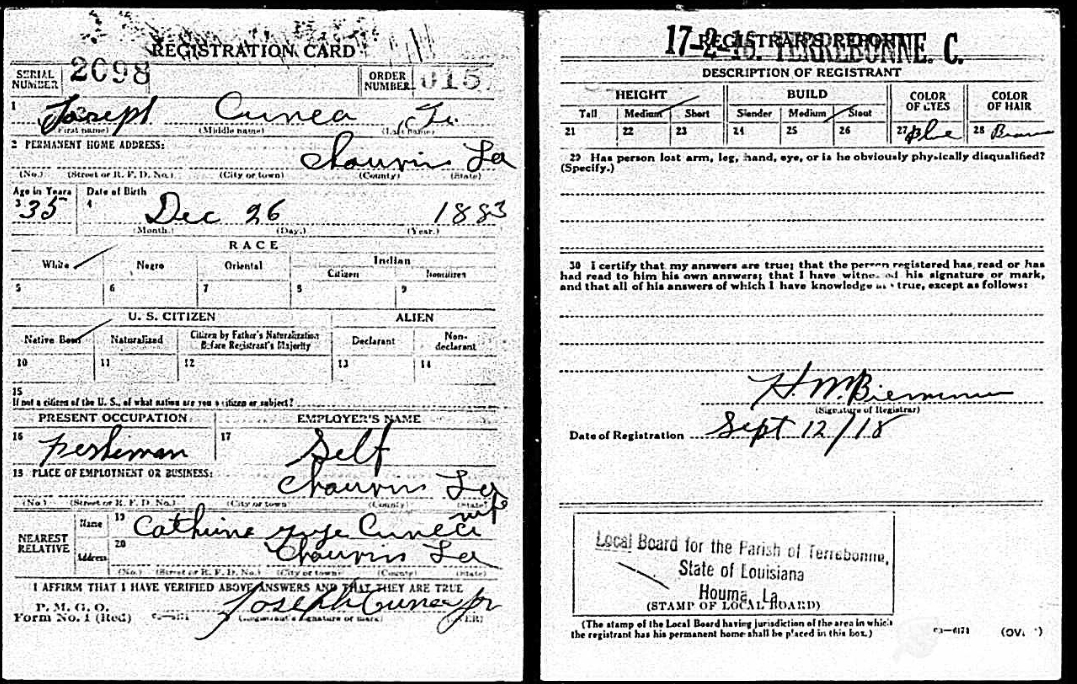 REGISTRATION CARD
SERIAL NUMBER 2098 ORDER NUMBER 015
1 Joseph Cunea Jr.
(First name) (Middle name) (Last name)
2 PERMANENT HOME ADDRESS:
Chauvin La
(No.) (Street or R. F. D. No.) (City or town) (County) (State)
Age in Years Date of Birth
3 35 4 Dec 26 1883
(Month.) (Day.) (Year.)
RACE
White Negro Oriental Indian
Citizen Noncitizen
5 6 7 8 9
U. S. CITIZEN ALIEN
Native Born Naturalized Citizen by Father's Naturalization Before Registrant's Majority Declarant Non-declarant
10 11 12 13 14
15
If not a citizen of the U. S., of what nation are you a citizen or subject?
PRESENT OCCUPATION EMPLOYER'S NAME
16 17 Self
18 PLACE OF EMPLOYMENT OR BUSINESS:
Chauvin La
(No.) (Street or R. F. D. No.) (City or town) (County) (State)
NEAREST RELATIVE Name 19 Cathrine Cunea
Address 20 Chauvin La
(No.) (Street or R. F. D. No.) (City or town) (County) (State)
I AFFIRM THAT I HAVE VERIFIED ABOVE ANSWERS AND THAT THEY ARE TRUE
P. M. G. O.
Form No. 1 (Red) Joseph Cunea Jr
(Registrant's signature or mark) (OVER)
REGISTRAR'S REPORT
17-2-15. TERREBONNE. C.
DESCRIPTION OF REGISTRANT
HEIGHT BUILD COLOR OF EYES COLOR OF HAIR
Tall Medium Short Slender Medium Stout
21 22 23 24 25 26 27 Blue 28 Brown
29 Has person lost arm, leg, hand, eye, or is he obviously physically disqualified?
(Specify.)
30 I certify that my answers are true; that the person registered has read or has
had read to him his own answers; that I have witnessed his signature or mark,
and that all of his answers of which I have knowledge are true, except as follows:
H. M.
(Signature of Registrar)
Date of Registration Sept 12/18
Local Board for the Parish of Terrebonne,
State of Louisiana
Houma, La.
(STAMP OF LOCAL BOARD)
(The stamp of the Local Board having jurisdiction of the area in which
the registrant has his permanent home shall be placed in this box.)
03-6171 (OVER)